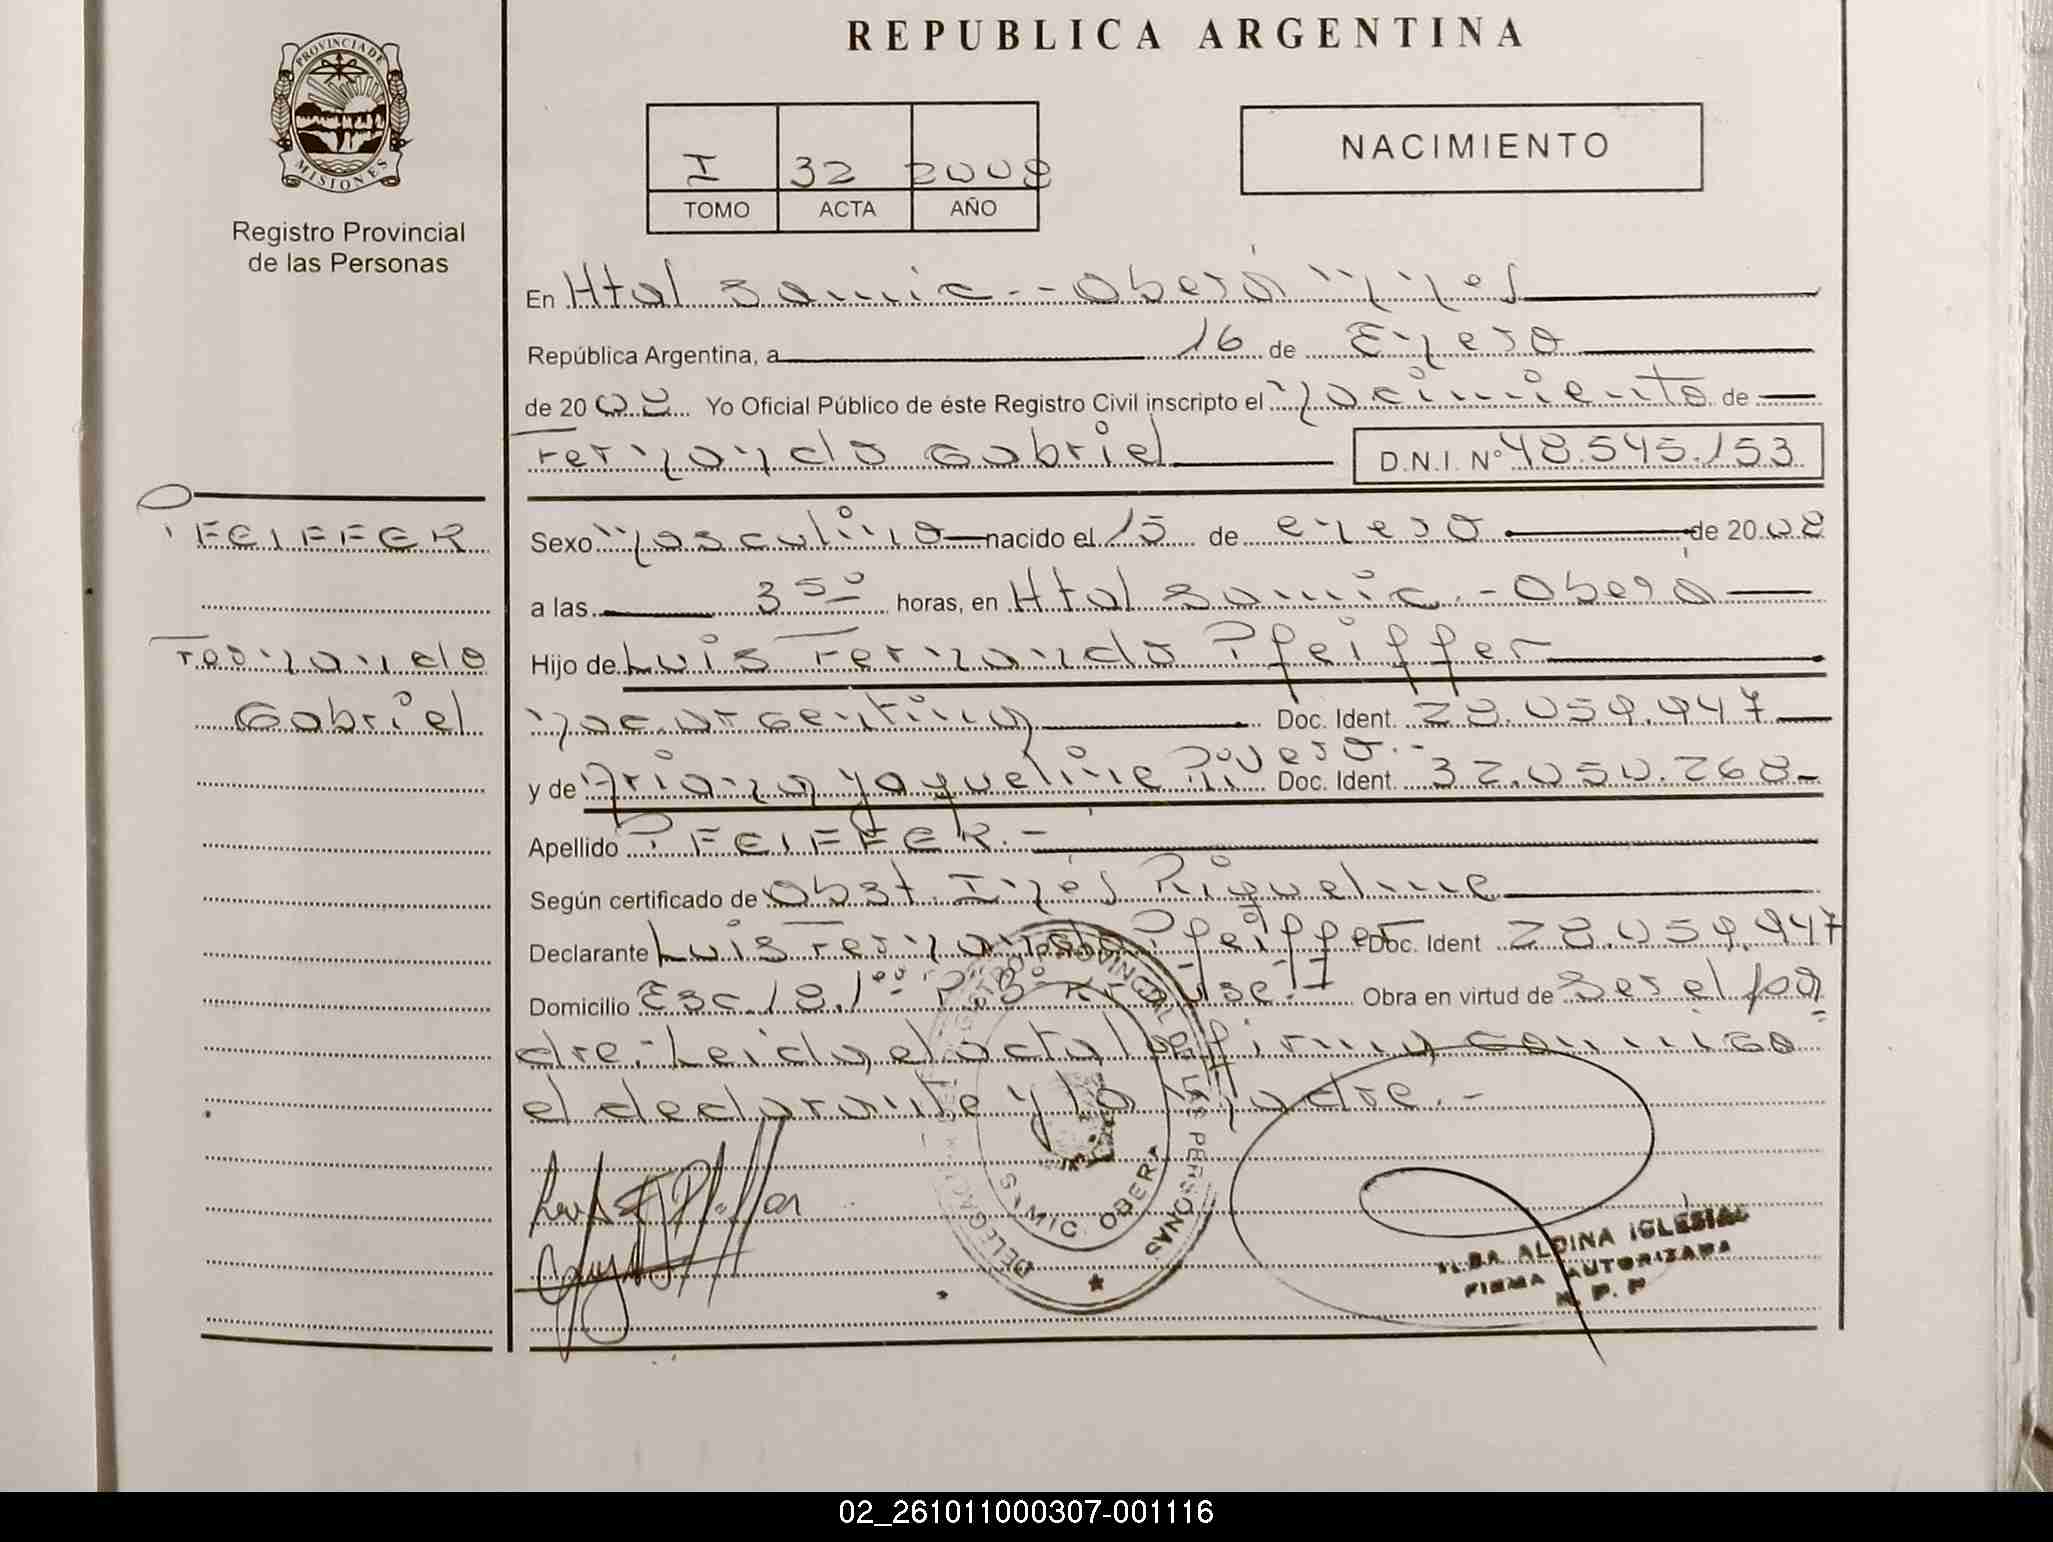 REPUBLICA ARGENTINA
PROVINCIA DE
MISIONES
Registro Provincial
de las Personas
I 32 2008
TOMO ACTA AÑO
NACIMIENTO
En Htal Samic.- Oberá Mnes
República Argentina, a 16 de Enero
de 2008 Yo Oficial Público de éste Registro Civil inscripto el nacimiento de
Fernando Gabriel D.N.I. Nº 48.545.153
PFEIFFER
Fernando
Gabriel
Sexo Masculino nacido el 15 de enero de 2008
a las 3 50 horas, en Htal Samic.- Oberá
Hijo de Luis Fernando Pfeiffer
Nac. argentina Doc. Ident. 28.059.947
y de Ariana Yaqueline Rivero.- Doc. Ident. 32.050.268-
Apellido PFEIFFER.-
Según certificado de Obst. Inés Riquelme
Declarante Luis Fernando Pfeiffer Doc. Ident 28.059.947
Domicilio Obra en virtud de Ser el pa
dre.- Leida el acta la firma conmigo
el declarante y la madre.-
REGISTRO PROVINCIAL DE LAS PERSONAS
DELEGACI
SAMIC OBERA
ALBA ALDINA IGLESIAS
FIRMA AUTORIZADA
R. P. P
02_261011000307-001116